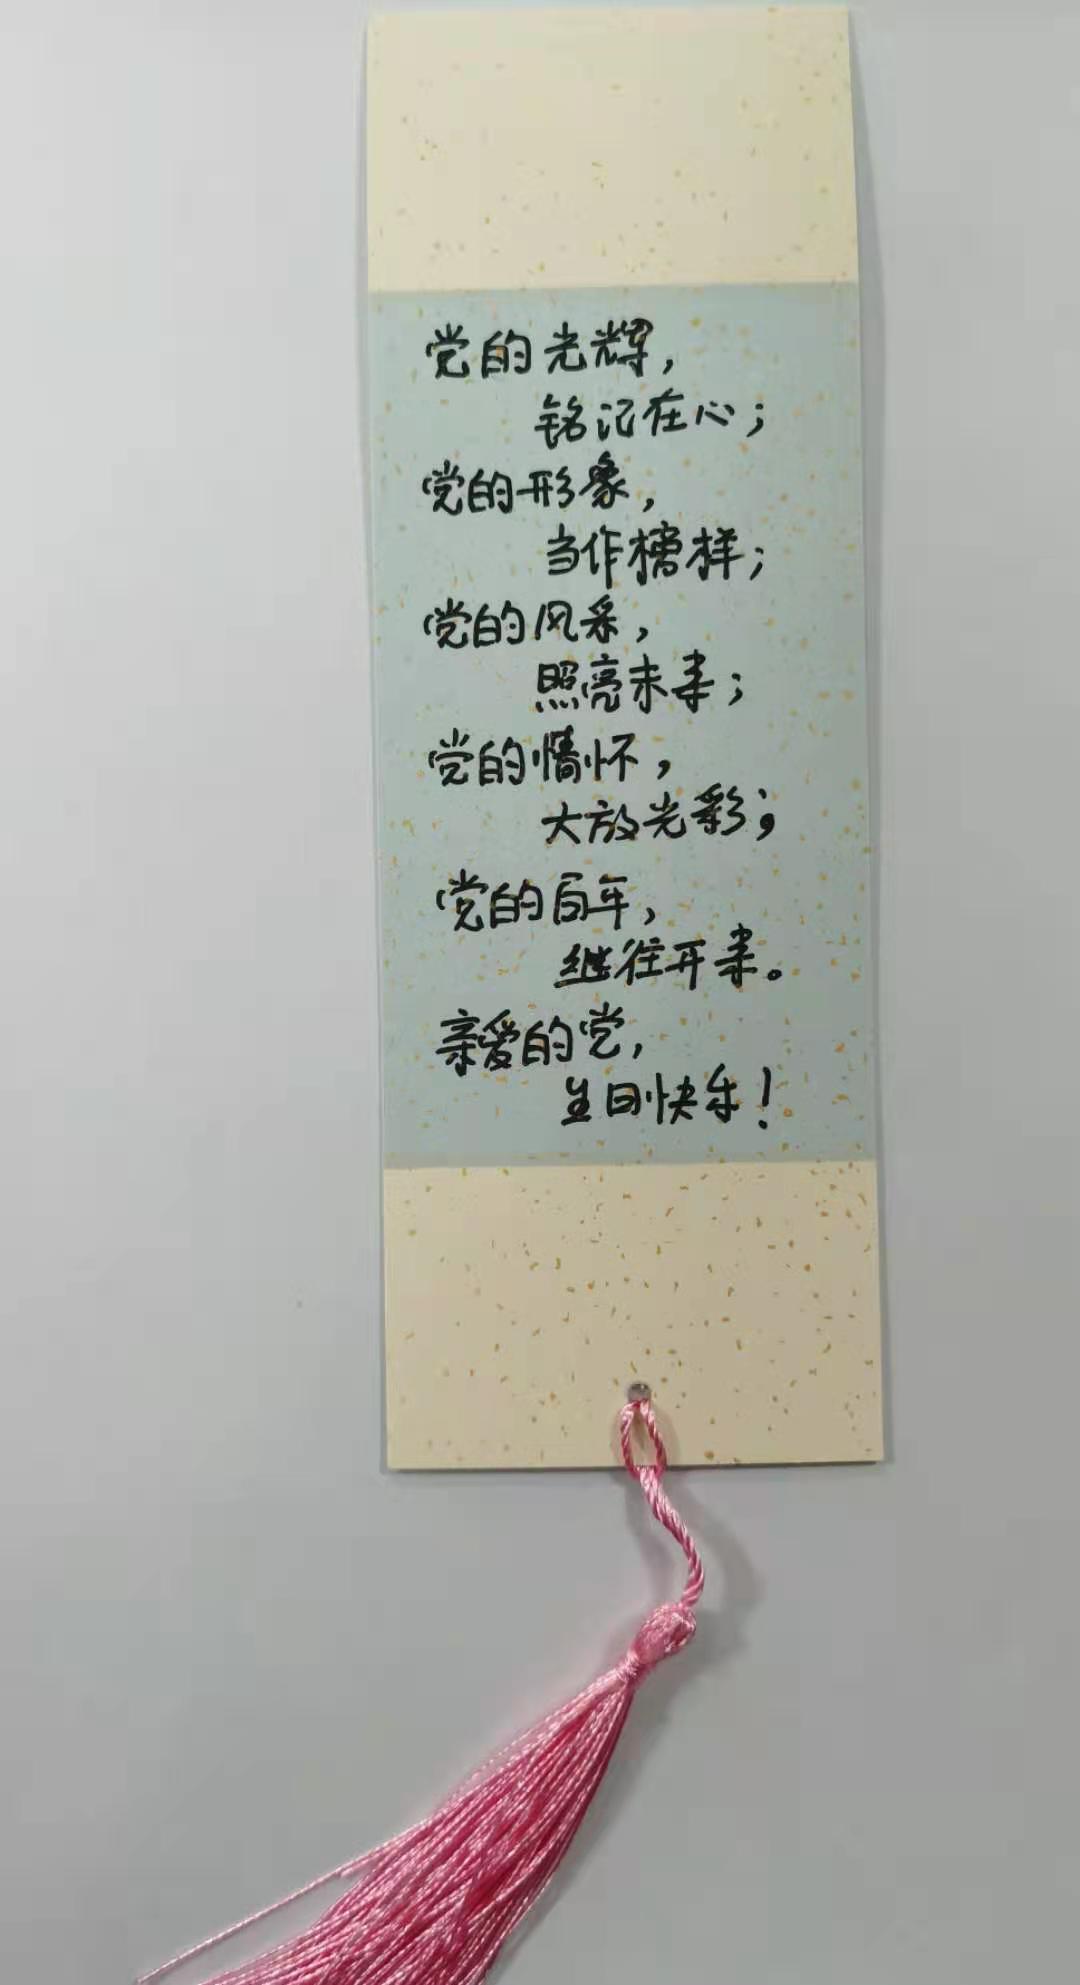 党的光辉，
铭记在心；
党的形象，
当作榜样；
党的风采，
照亮未来；
党的情怀，
大放光彩；
党的百年，
继往开来。
亲爱的党，
生日快乐！